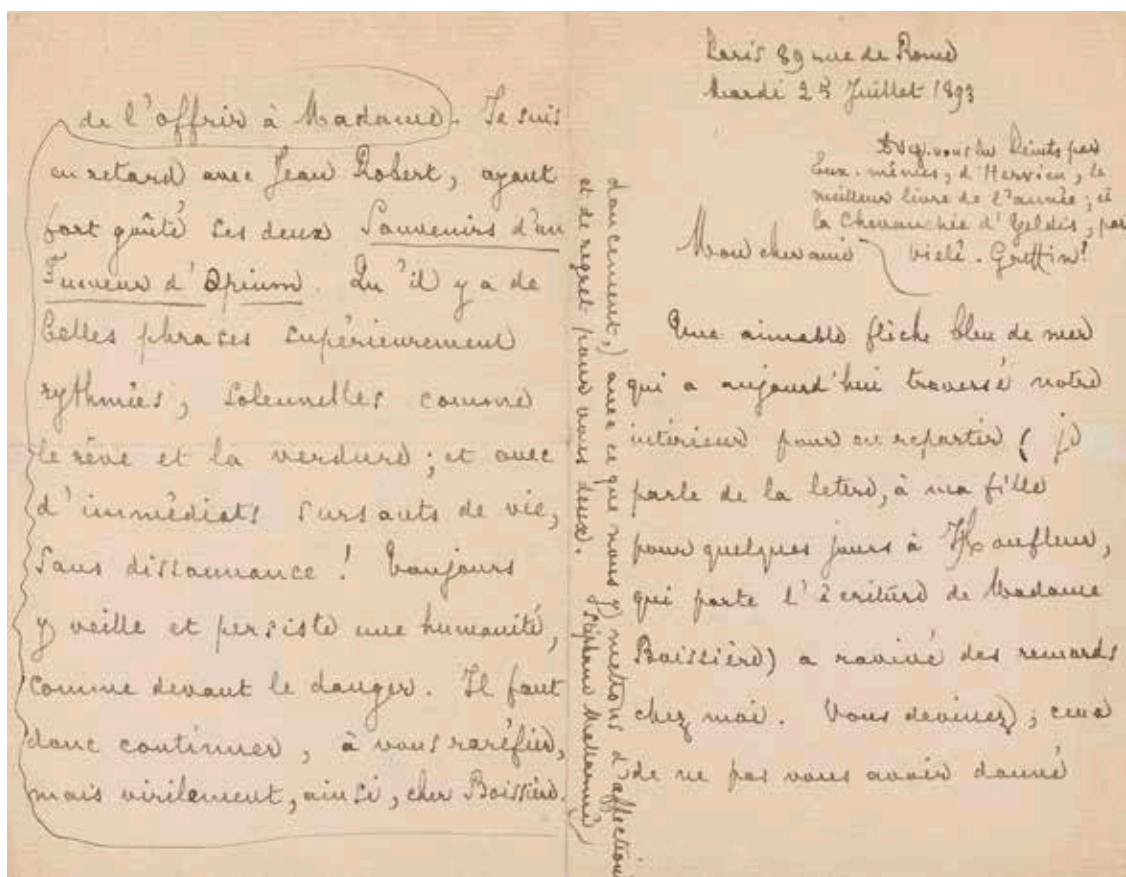 Paris 89 rue de Rome
Mardi 25 Juillet 1893
Avez-vous lu Peints par
Eux-mêmes, d'Hervieu, le
meilleur livre de l'année; et
la Chevauchée d'Yeldis, par
Vielé-Griffin!
Mon cher ami
Une aimable flèche bleu de mer
qui a aujourd'hui traversé notre
intérieur pour en repartir (je
parle de la lettre, à ma fille
pour quelques jours à Honfleur,
qui porte l'écriture de Madame
Boissière) a ravivé des remords
chez moi. Vous devinez; ceux
de ne pas vous avoir donné
de l'offrir à Madame. Je suis
en retard avec Jean Robert, ayant
fort goûté ses deux Souvenirs d'un
Fumeur d'Opium. Qu'il y a de
belles phrases supérieurement
rythmées, solennelles comme
le rêve et la verdure; et avec
d'immédiats sursauts de vie,
sans dissonnance! Toujours
y veille et persiste une humanité,
comme devant le danger. Il faut
donc continuer, à vous raréfier,
mais virilement, ainsi, cher Boissière.
doucement,) avec ce que nous y mettons d'affection
et de regret pour vous deux.
Stéphane Mallarmé